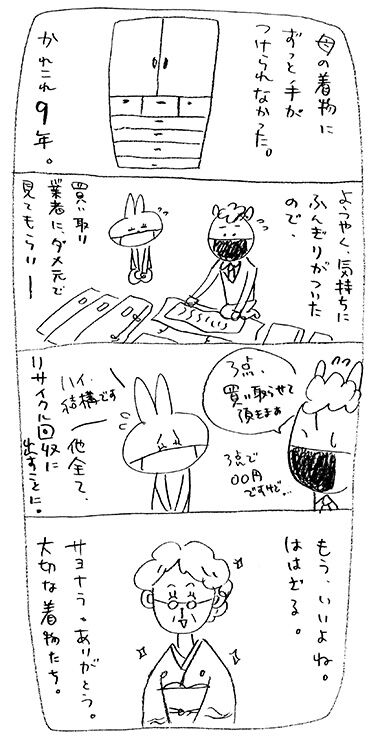 母の着物に
ずっと手が
つけられなかった。
かれこれ9年。
ようやく、気持ちに
ふんぎりがついた
ので、
買い取り
業者に、ダメ元で
見てもらいー
3点、
買い取らせて
頂きまぁ
3点で
00円
ですけど…
ハイ、
結構です
他全て、
リサイクル回収に
出すことに。
もう、いいよね。
ははぎみ。
サヨナラ。ありがとう。
大切な着物たち。